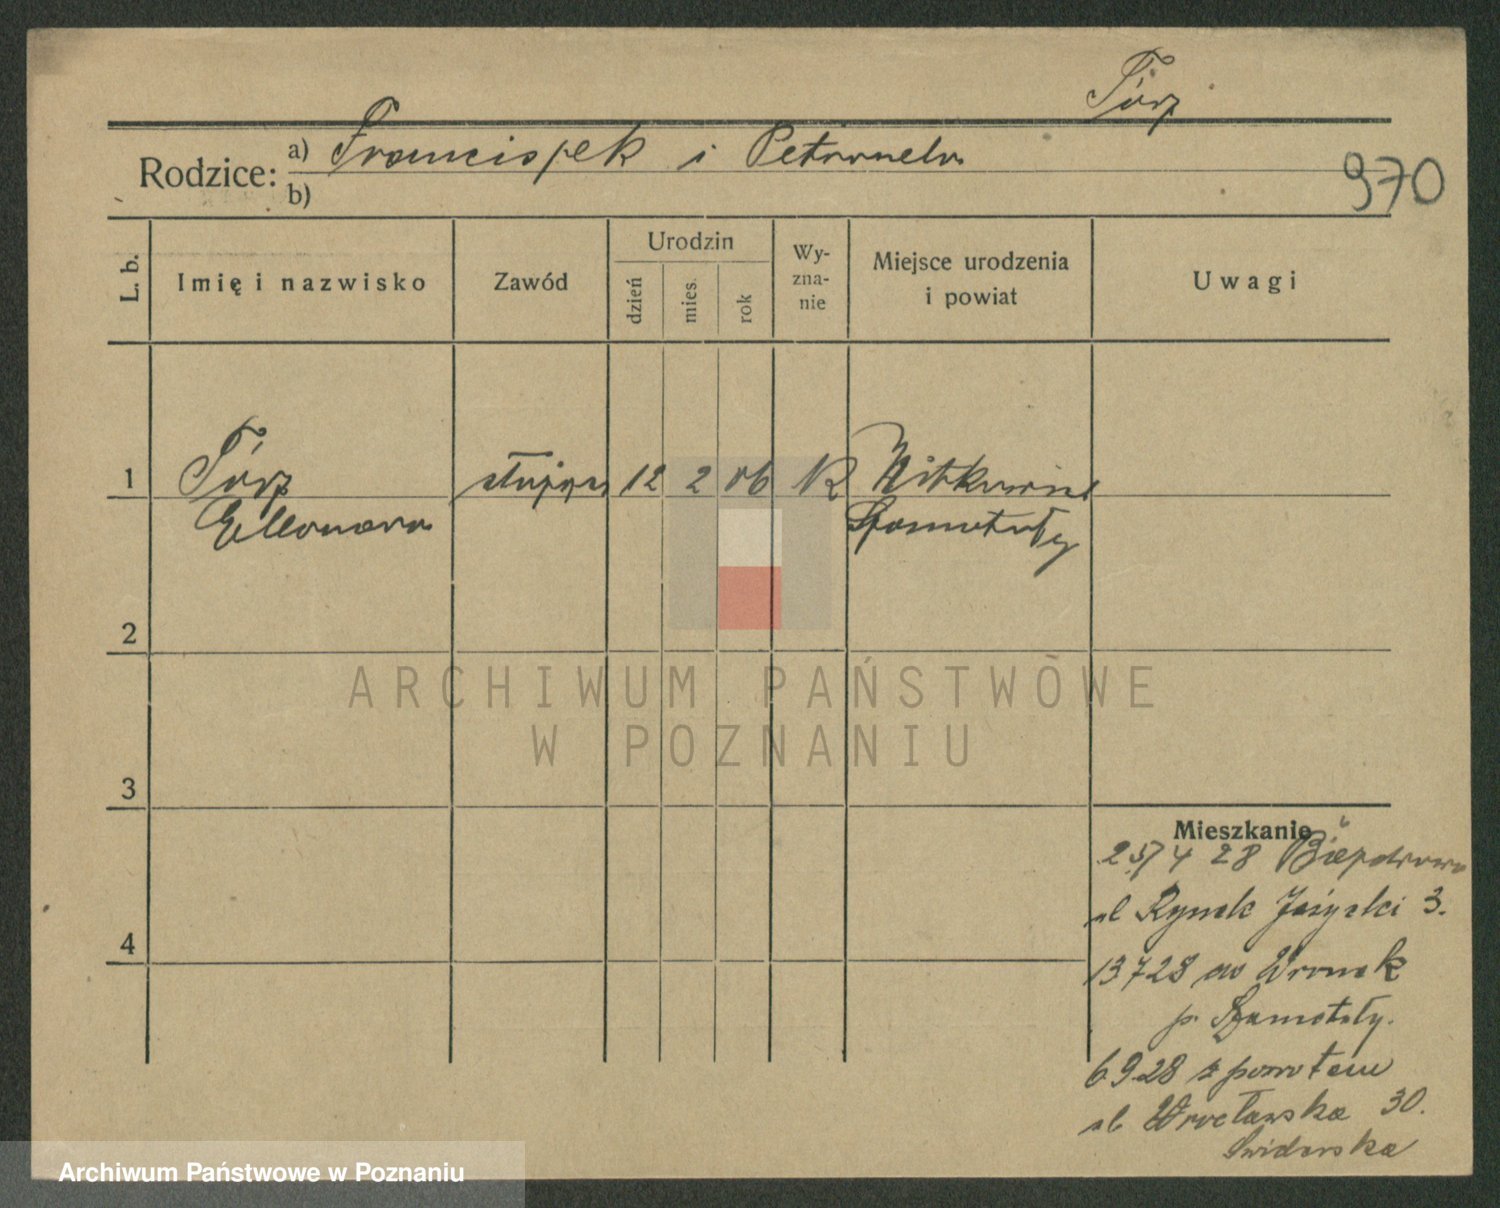 Tórz
Rodzice: a) Franciszek i Petronela
b)
970
L. b.
Imię i nazwisko
Zawód
Urodzin
dzień
mies.
rok
Wy-
zna-
nie
Miejsce urodzenia
i powiat
Uwagi
1
Tórz
służąca
12 2 06 K
Szamotuły
2
3
4
Mieszkanie
4 28
ul Rynek Jeżycki 3.
13 7 28 do Wronek
p. Szamotuły.
6 9 28 z powrotem
ul Wrocławska 30.
Świderska
ARCHIWUM PAŃSTWOWE
W POZNANIU
Archiwum Państwowe w Poznaniu